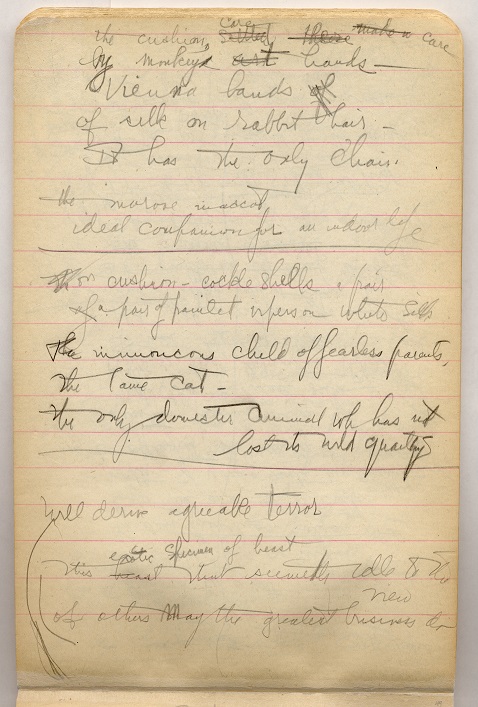 care
the cushion, settled these make a care
by monkeys art hands —
Vienna bands of
of silk on rabbit hair —
It has the only Chair.
the morose mascot
ideal companion for an indoor life
on cushion - cockle shells a pair
of a pair of
on white silk
the child of fearless parents,
the tame cat —
the only domestic animal wh has not
lost its wild quality
will derive agreeable terror
exotic specimen of beast
this beast that seemeth idle to the
new
of others May the greatest business do